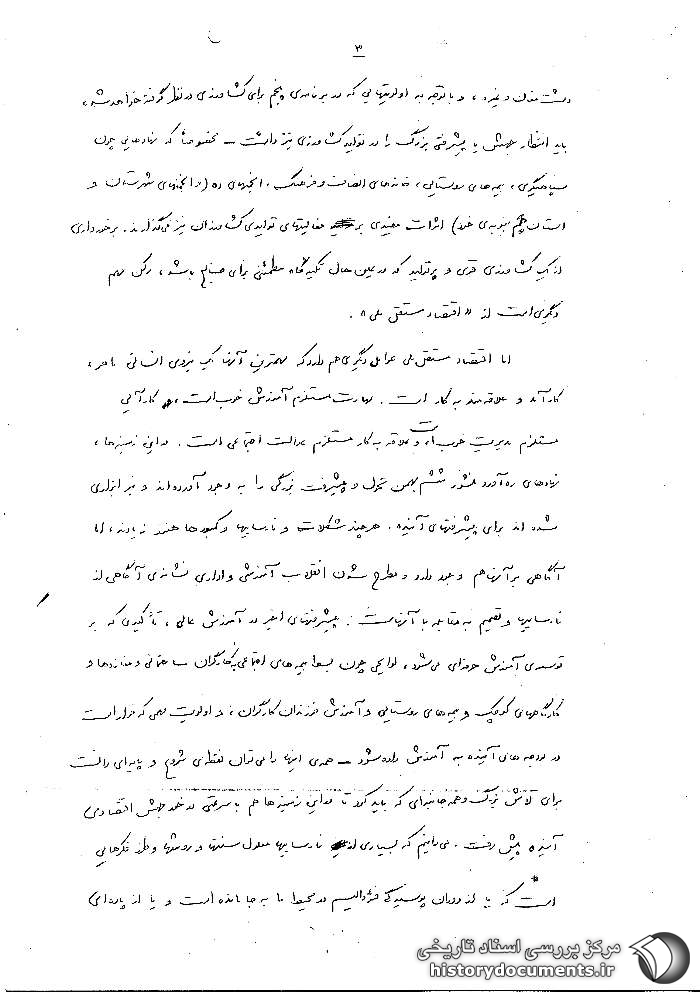 ۳
دشت مغان و غیره، و با توجه به اولویتهایی که در برنامه‌ی پنجم برای کشاورزی در نظر گرفته خواهد شد،
باید انتظار جهش یا پیشرفتی بزرگ را در تولید کشاورزی نیز داشت ــ مخصوصاً که نهادهایی چون
سپاهیگری، بیمه‌های روستایی، خانه‌های انصاف و فرهنگ، انجمنهای ده (و انجمنهای شهرستان و
استان هم بنوبه‌ی خود) اثرات مفیدی بر فعالیتهای تولیدی کشاورزان نیز می‌گذارند. برخورداری
از یک کشاورزی قوی و پرتولید که در عین حال تکیه‌گاه مطمئنی برای صنایع باشد، رکن مهم
دیگری است از «اقتصاد مستقل ملی».
اما اقتصاد مستقل ملی عوامل دیگری هم دارد که مهمترین آنها یک نیروی انسانی ماهر،
کارآمد و علاقه‌مند به کار است. مهارت مستلزم آموزش خوب است، کارآیی
مستلزم مدیریت خوب است و علاقه به کار مستلزم عدالت اجتماعی است. در این زمینه‌ها،
نهادهای ره‌آورد منشور ششم بهمن تحول و پیشرفت بزرگی را به وجود آورده‌اند و نیز ابزاری
شده اند برای پیشرفتهای آینده. هرچند مشکلات و نارساییها و کمبودها هنوز زیادند، اما
آگاهی بر آنها هم وجود دارد و مطرح شدن انقلاب آموزشی و اداری نشانه‌ی آگاهی از
نارساییها و تصمیم به مقابله با آنهاست. پیشرفتهای اخیر در آموزش عالی، تأکیدی که بر
توسعه‌ی آموزش حرفه‌ای می‌شود، لوایحی چون بسط بیمه‌های اجتماعی به کارگران ساختمانی و مغازه‌ها و
کارگاههای کوچک و بیمه‌های روستایی و آموزش فرزندان کارگران، و اولویت مهمی که قرار است
در بودجه های آینده به آموزش داده شود ــ همه‌ی اینها را می‌توان نقطه‌ی شروع و پایه‌ای دانست
برای تلاش بزرگ و همه جانبه‌ای که باید کرد تا در این زمینه‌ها هم با سرعتی در خور جهش اقتصادی
آینده پیش رفت. می‌دانیم که بسیاری از نارساییها معلول سنتها و روشها و طرز فکرهایی
است که یا از دوران پوسیدگی فئودالیسم در محیط ما به جا مانده است و یا از پاره‌ای
مرکز بررسی اسناد تاریخی
historydocuments.ir